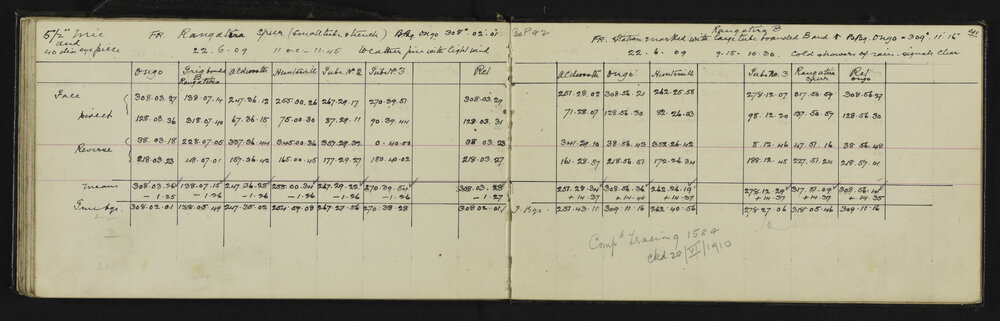 5½" Mic
and
40 dia eyepiece
FR. Rangatira Spur (small tube & trench) Brg Ongo 308° 02' 01"
22.6.09 11.0 - 11.45 Weather fine with light wind
Ongo Aldworth Hunterville Tub. No 2 Tub. No 3 Rel
Rangatira
Face 308.03.27 138.07.14 247.36.12 255.00.26 267.29.17 270.39.51 308.03.29
Direct 128.03.36 318.07.40 67.36.15 75.00.30 87.29.11 90.39.44 128.03.31
Reverse 38.03.18 228.07.05 337.36.44 345.00.36 357.29.32 0.40.00 38.03.23
218.03.23 48.07.01 157.36.42 165.00.45 177.29.27 180.40.02 218.03.27
Means 308.03.26 138.07.15 247.36.28 255.00.34 267.29.22 270.39.54 308.03.28
-1.25 -1.26 -1.26 -1.26 -1.26 -1.26 -1.27
True Bgs. 308.02.01 138.05.49 247.35.02 254.59.08 267.27.56 270.38.28 308.02.01
P 42
Rangatira B
FR. Station marked with large tube boarded Band & Brg. Ongo = 309° 11' 16"
22.6.09 9.15 - 10.30 Cold showers of rain. signals clear
Aldworth Ongo Hunterville Tub. No. 3 Rangatira Spur Rel Ongo
251.28.02 308.56.21 262.25.58 278.12.07 317.50.59 308.56.27
71.28.07 128.56.30 82.26.03 98.12.20 137.50.57 128.56.30
341.29.10 38.56.43 352.26.42 8.12.46 47.51.16 38.56.48
161.28.57 218.56.51 172.26.34 188.12.45 227.51.24 218.57.01
251.28.34 308.56.36 262.26.19 278.12.29 317.51.09 308.56.41
+14.37 +14.40 +14.37 +14.37 +14.37 +14.35
T. Bgs. 251.43.11 309.11.16 262.40.56 278.27.06 318.05.46 309.11.16
Comp'd Tracing 1584
Ckd 20/VI/1910